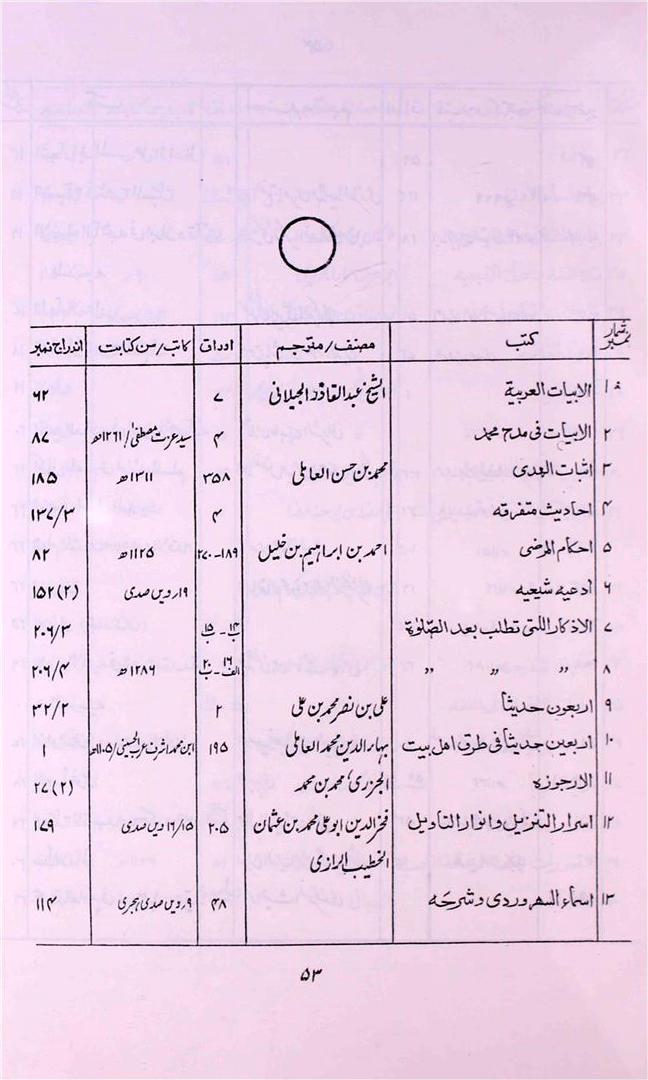 شمار نمبر | کتب | مصنف / مترجم | اوراق | کاتب / سن کتابت | اندراج نمبر
۱ | الابیات العربیة | الشیخ عبدالقادر الجیلانی | ۷ | | ۶۲
۲ | الابیات فی مدح محمد | | ۴ | سید عزت مصطفیٰ / ۱۲۶۱ھ | ۸۷
۳ | اثبات الهدی | محمد بن حسن العاملی | ۳۵۸ | ۱۳۱۱ھ | ۱۸۵
۴ | احادیث متفرقه | | ۴ | | ۱۳۷/۳
۵ | احکام المرضی | احمد بن ابراهیم بن خلیل | ۱۸۹-۲۷۰ | ۱۱۲۵ھ | ۸۲
۶ | ادعیه شیعیه | | | ۱۹ ویں صدی | ۱۵۲(۲)
۷ | الاذکار اللتی تطلب بعد الصلوٰة | | ۱۴ب - ۱۵ب | | ۲۰۶/۳
۸ | ,, ,, ,, | | ۱۶الف - ۲۰ب | ۱۲۸۶ھ | ۲۰۶/۴
۹ | اربعون حدیثاً | علی بن نصر محمد بن علی | ۲ | | ۳۲/۲
۱۰ | اربعین حدیثاً فی طرق اهل بیت | بہاء الدین محمد العاملی | ۱۹۵ | ابن محمد اشرف عرب الحسینی / ۱۱۰۵ھ | ۱
۱۱ | الارجوزه | الجزری، محمد بن محمد | | | ۲۷(۲)
۱۲ | اسرار التنزیل و انوار التاویل | فخر الدین ابو علی محمد بن عثمان | ۲۰۵ | ۱۶/۱۵ ویں صدی | ۱۴۹
الخطیب الرازی
۱۳ | اسماء السهروردی و شرحه | | ۴۸ | ۹ ویں صدی ہجری | ۱۱۴
۵۳